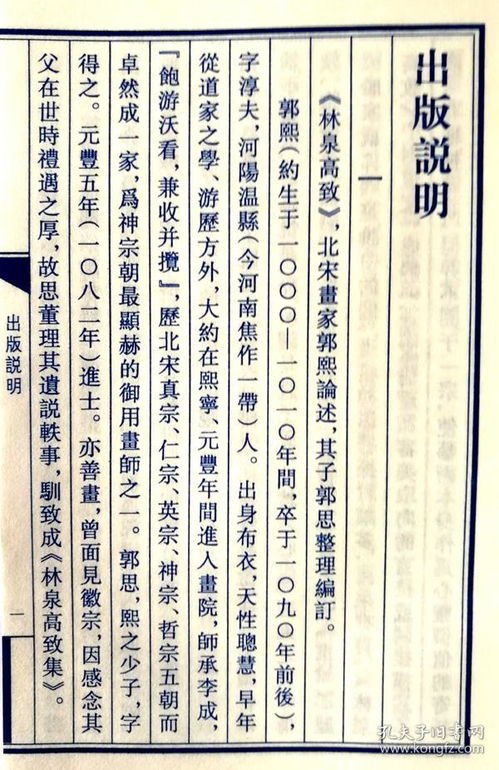 出版説明
一
《林泉高致》，北宋畫家郭熙論述，其子郭思整理編訂。
郭熙（約生于一〇〇〇—一〇一〇年間，卒于一〇九〇年前後），
字淳夫，河陽温縣（今河南焦作一帶）人。出身布衣，天性聰慧，早年
從道家之學、游歷方外，大約在熙寧、元豐年間進入畫院，師承李成，
『飽游沃看，兼收并攬』，歷北宋真宗、仁宗、英宗、神宗、哲宗五朝而
卓然成一家，爲神宗朝最顯赫的御用畫師之一。郭思，熙之少子，字
得之。元豐五年（一〇八二年）進士。亦善畫，曾面見徽宗，因感念其
父在世時禮遇之厚，故思董理其遺説軼事，馴致成《林泉高致集》。
出版説明
一
孔夫子旧书网
www.kongfz.com